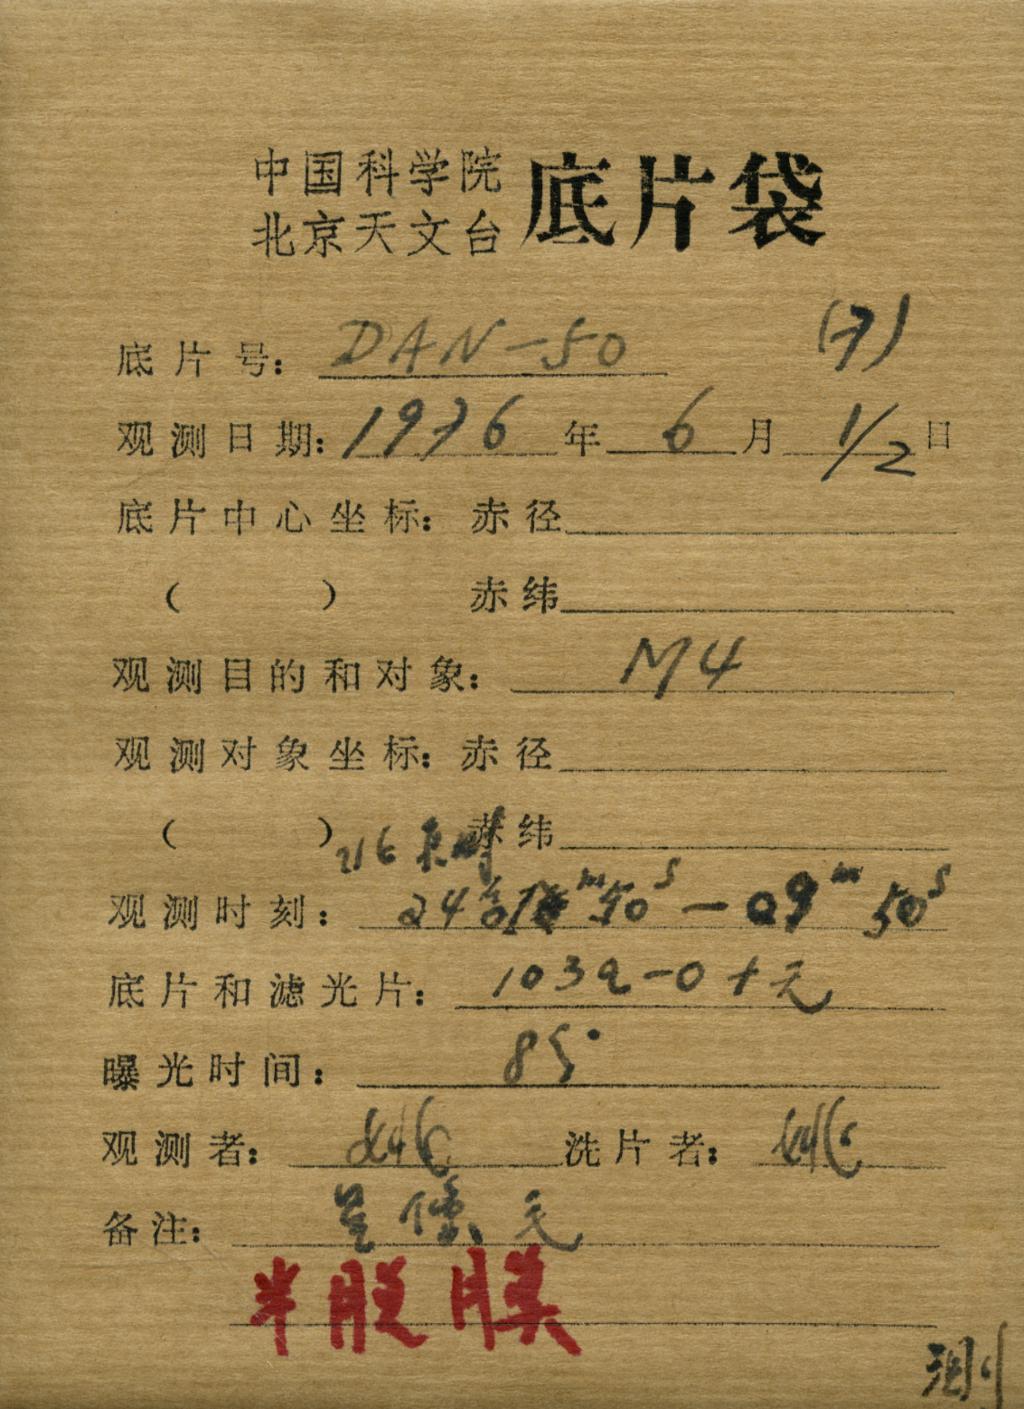 中国科学院
北京天文台 底片袋
底片号: DAN-50 (7)
观测日期: 1976 年 6 月 1/2 日
底片中心坐标: 赤径
( ) 赤纬
观测目的和对象: M4
观测对象坐标: 赤径
( ) 赤纬
观测时刻: 50s - 09m 50s
底片和滤光片: 103a-O + 无
曝光时间: 8分
观测者: 姚 洗片者: 姚
备注: 星像
半脱膜
测